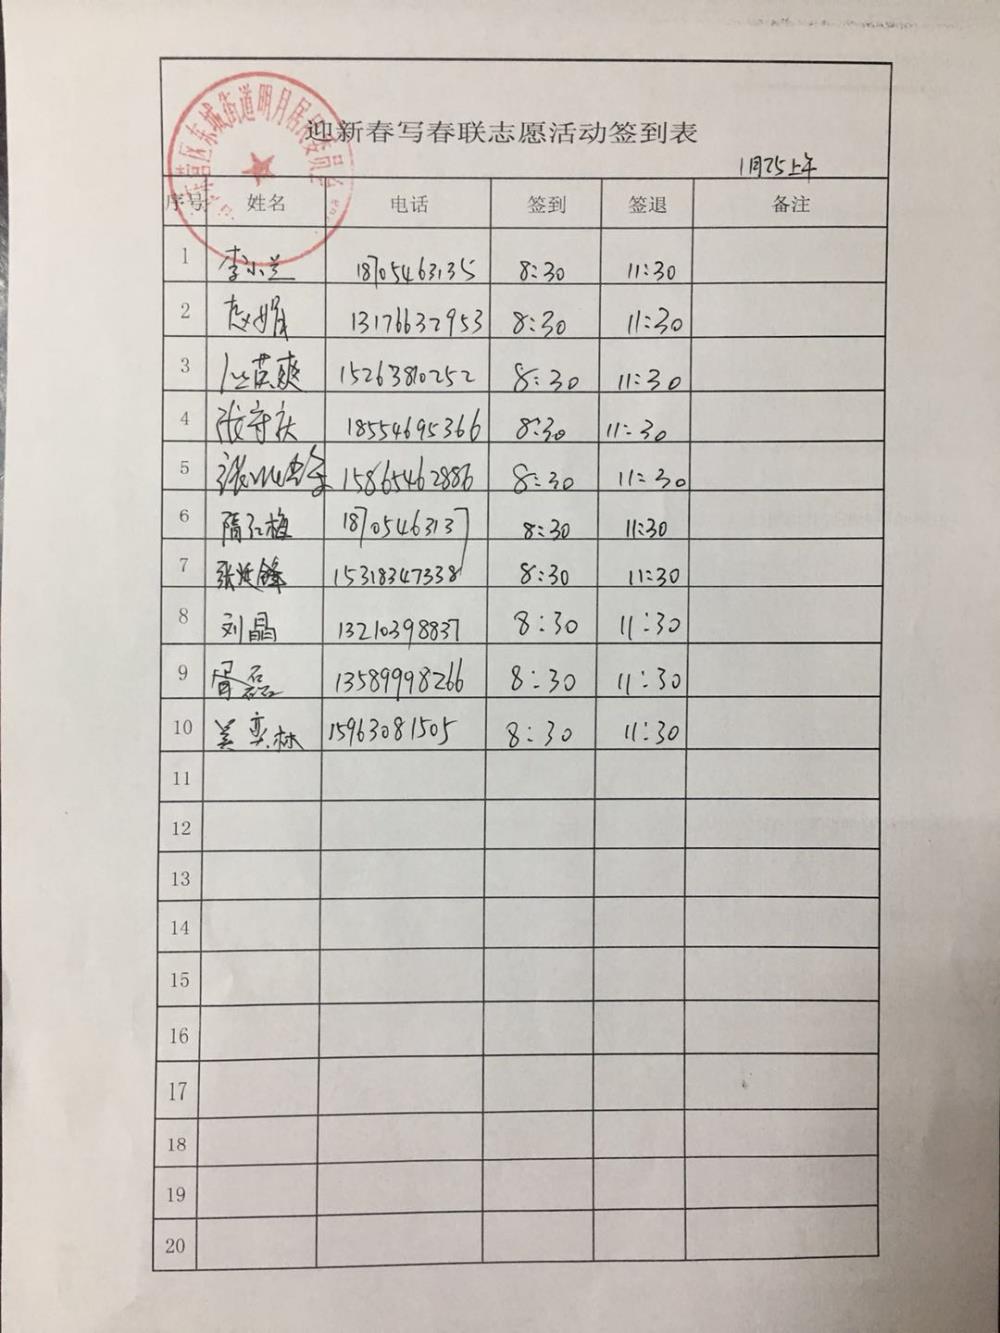 东营区东城街道明月居民委员会
迎新春写春联志愿活动签到表
1月25上午
序号 姓名 电话 签到 签退 备注
1 李小兰 18705463135 8:30 11:30
2 赵娟 13176632953 8:30 11:30
3 爽 15263810252 8:30 11:30
4 张守庆 18554695366 8:30 11:30
5 张 15865462886 8:30 11:30
6 隋红梅 18705463137 8:30 11:30
7 张延锋 15318347338 8:30 11:30
8 刘晶 13210398837 8:30 11:30
9 胥磊 13589998266 8:30 11:30
10 姜奕林 15963081505 8:30 11:30
11
12
13
14
15
16
17
18
19
20